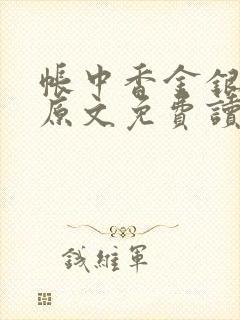 帳中香金銀
原文免費讀
錢維軍